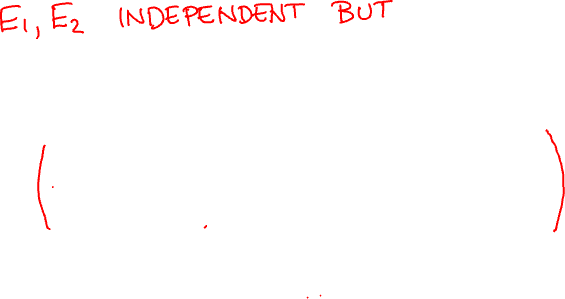 E1, E2 INDEPENDENT BUT
( )